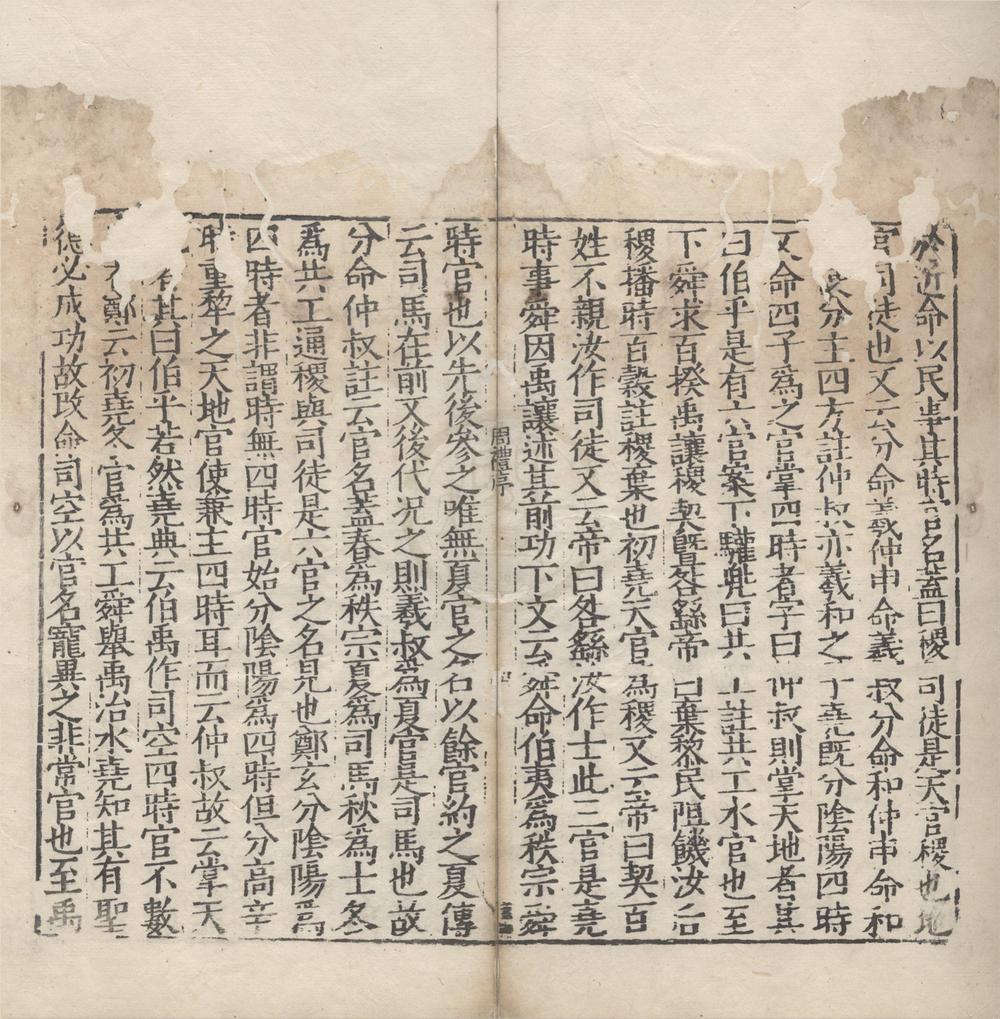 於近命以民事其時官名蓋曰稷司徒是天官稷也地
官司徒也又云分命羲仲申命羲叔分命和仲申命和
義分主四方註仲叔亦羲和之子堯既分陰陽四時
又命四子爲之官掌四時者字曰仲叔則掌天地者其
曰伯乎是有六官案下驩兜曰共工註共工水官也至
下舜求百揆禹讓稷契曁咎繇帝曰棄黎民阻飢汝后
稷播時百穀註稷棄也初堯天官爲稷又云帝曰契百
姓不親汝作司徒又云帝曰咎繇汝作士此三官是堯
時事舜因禹讓述其前功下文云舜命伯夷爲秩宗舜
周禮序
時官也以先後參之唯無夏官之名以餘官約之夏傳
云司馬在前又後代况之則羲叔爲夏官是司馬也故
分命仲叔註云官名蓋春爲秩宗夏爲司馬秋爲士冬
爲共工通稷與司徒是六官之名見也鄭玄分陰陽爲
四時者非謂時無四時官始分陰陽爲四時但分高辛
時重犂之天地官使兼主四時耳而云仲叔故云掌天
者其曰伯乎若然堯典云伯禹作司空四時官不數
鄭云初堯冬官爲共工舜舉禹治水堯知其有聖
德必成功故改命司空以官名寵異之非常官也至禹